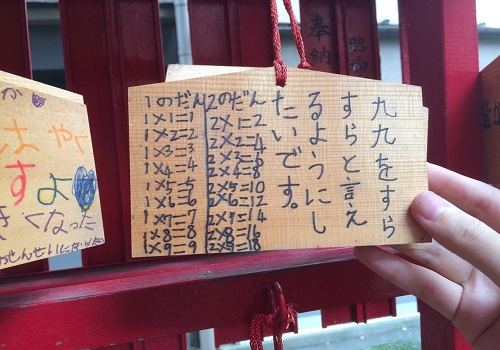 九九をすら
すらと言え
るようにし
たいです。
2のだん
2×1=2
2×2=4
2×3=6
2×4=8
2×5=10
2×6=12
2×7=14
2×8=16
2×9=18
1のだん
1×1=1
1×2=2
1×3=3
1×4=4
1×5=5
1×6=6
1×7=7
1×8=8
1×9=9
はやく
すよ
くなった
せんせいになりたい
奉納